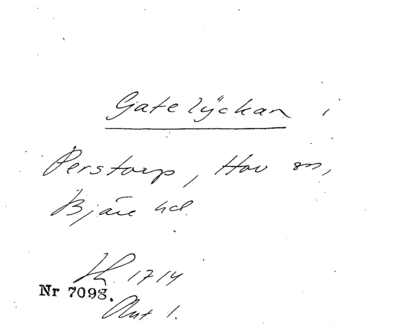 Gatelyckan i
Perstorp, Hov sn,
Bjäre hd.
1714
Nr 7098.
Akt 1.